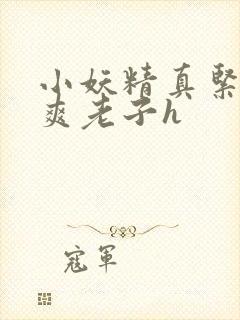 小妖精真紧
爽老子h
寇军